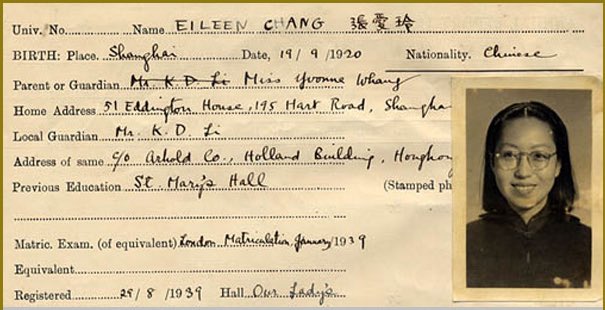 Univ. No. Name EILEEN CHANG 張愛玲
BIRTH: Place. Shanghai Date, 19/9/1920 Nationality. Chinese
Parent or Guardian Mr. K. D. Li Miss Yvonne Whang
Home Address 51 Eddington House, 195 Hart Road, Shangha
Local Guardian Mr. K. D. Li
Address of same c/o Arhold Co., Holland Building, Hongkong
Previous Education St. Mary's Hall (Stamped ph
Matric. Exam. (of equivalent) London Matriculation, January/1939
Equivalent
Registered 29/8/1939 Hall Our Lady's